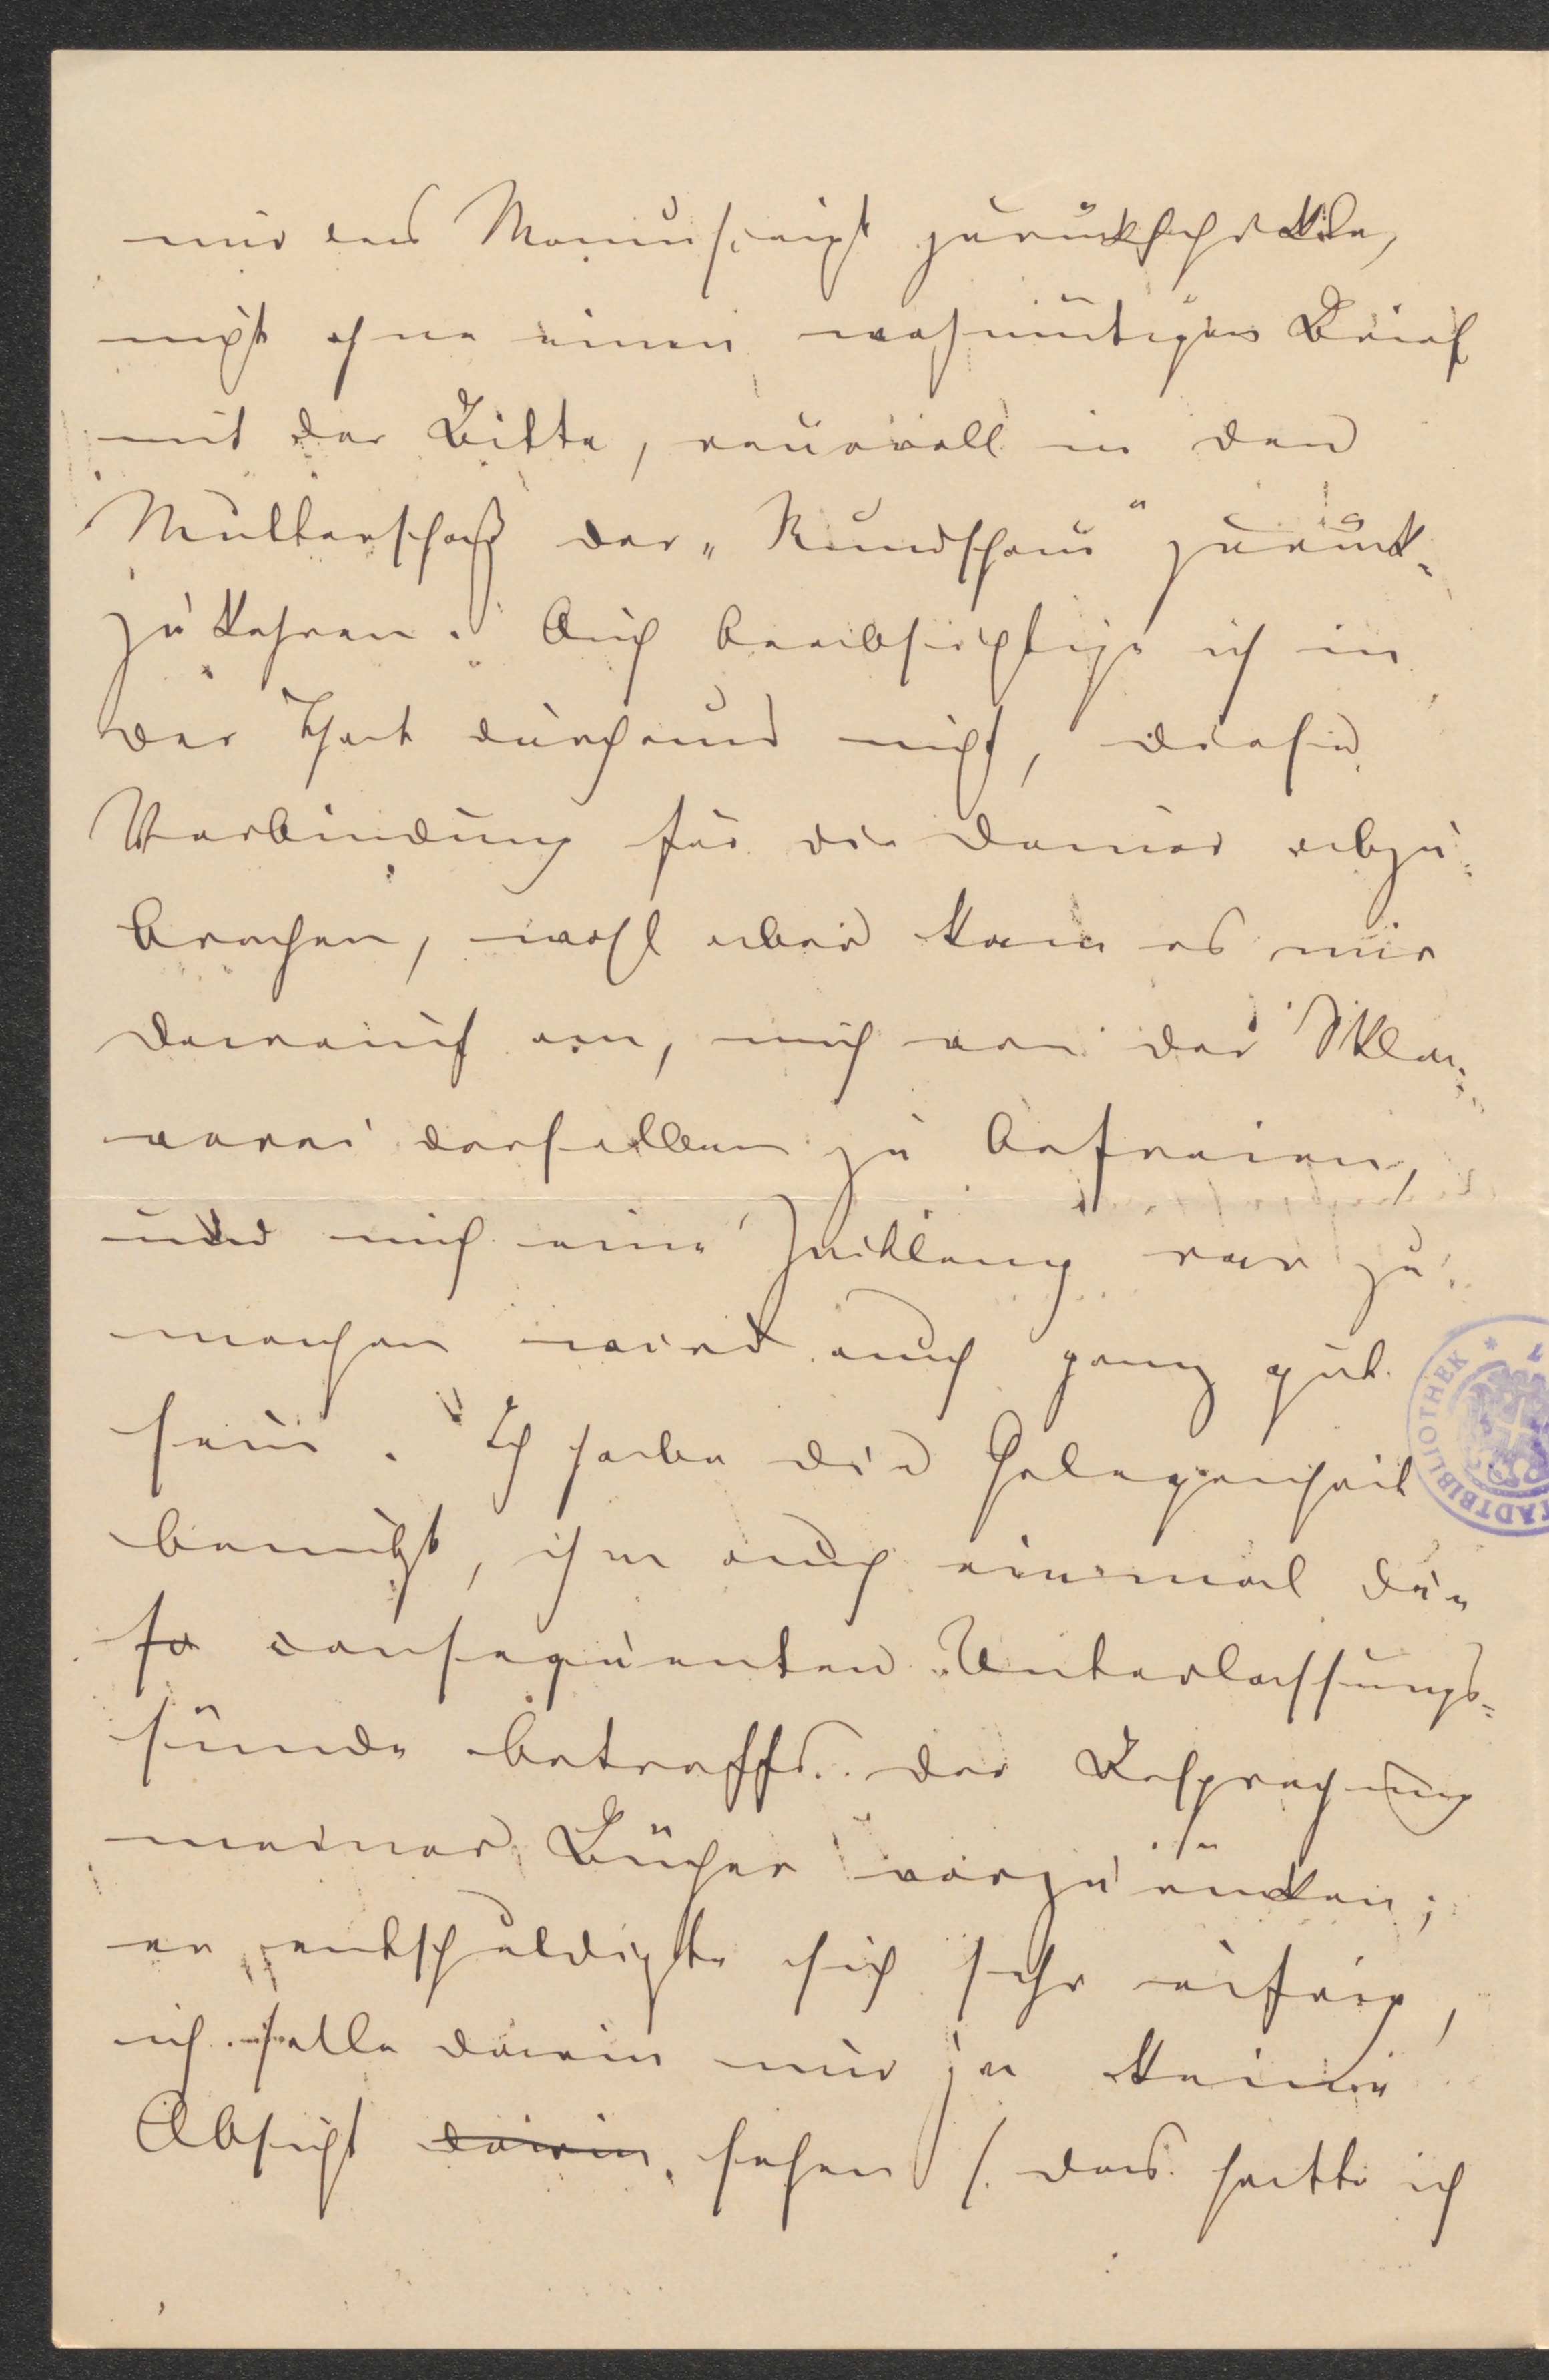 mir das Manuscript zurückschickte,
nicht ohne einen wehmütigen Brief
mit der Bitte, reuevoll in den
Mutterschoß der „Rundschau" zurück-
zukehren. Auch beabsichtige ich in
der That durchaus nicht, diese
Verbindung für die Dauer abzu-
brechen, wohl aber kam es mir
darauf an, mich von der Skla-
verei derselben zu befreien,
und mich eine Zeitlang rar zu
machen wird auch ganz gut
sein. Ich habe die Gelegenheit
benutzt, ihm auch einmal die
so consequenten Unterlassungs-
sünde betreffs der Besprechung
meiner Bücher vorzurücken;
er entschuldigte sich sehr eifrig,
ich solle darin nur ja keine
Absicht darin sehen (das hatte ich
STADTBIBLIOTHEK